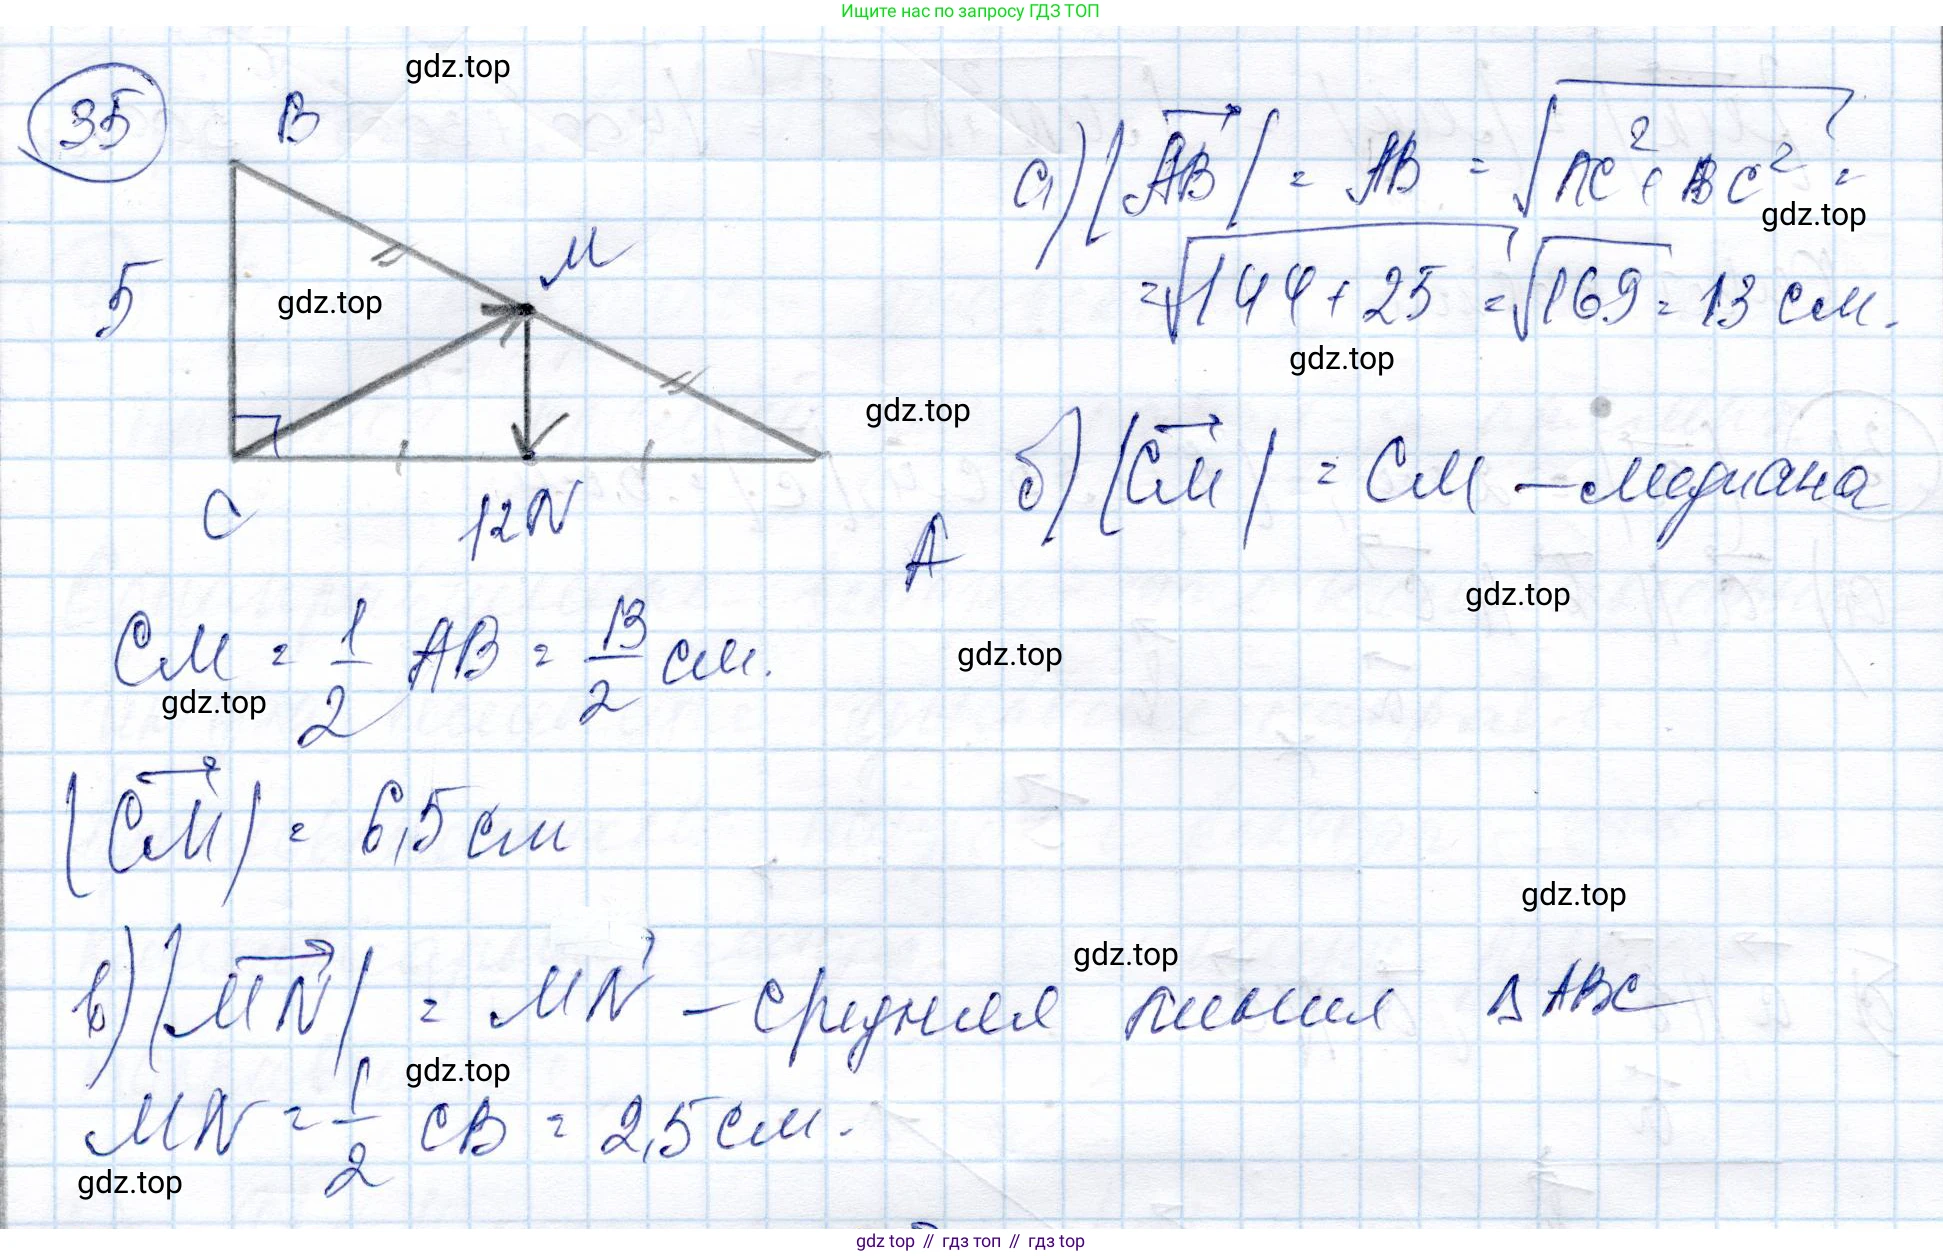 Ищите нас по запросу ГДЗ ТОП
gdz.top
35
B
а) |AB| = AB = √AC² + BC² =
gdz.top
M
5
gdz.top
= √144 + 25 = √169 = 13 см.
gdz.top
gdz.top
б) |CM| = CM – медиана
C
12 N
A
gdz.top
CM = 1/2 AB = 13/2 см.
gdz.top
gdz.top
|CM| = 6,5 см
gdz.top
gdz.top
в) |MN| = MN – средняя линия Δ ABC
gdz.top
MN = 1/2 CB = 2,5 см.
gdz.top
gdz top // гдз топ // гдз top